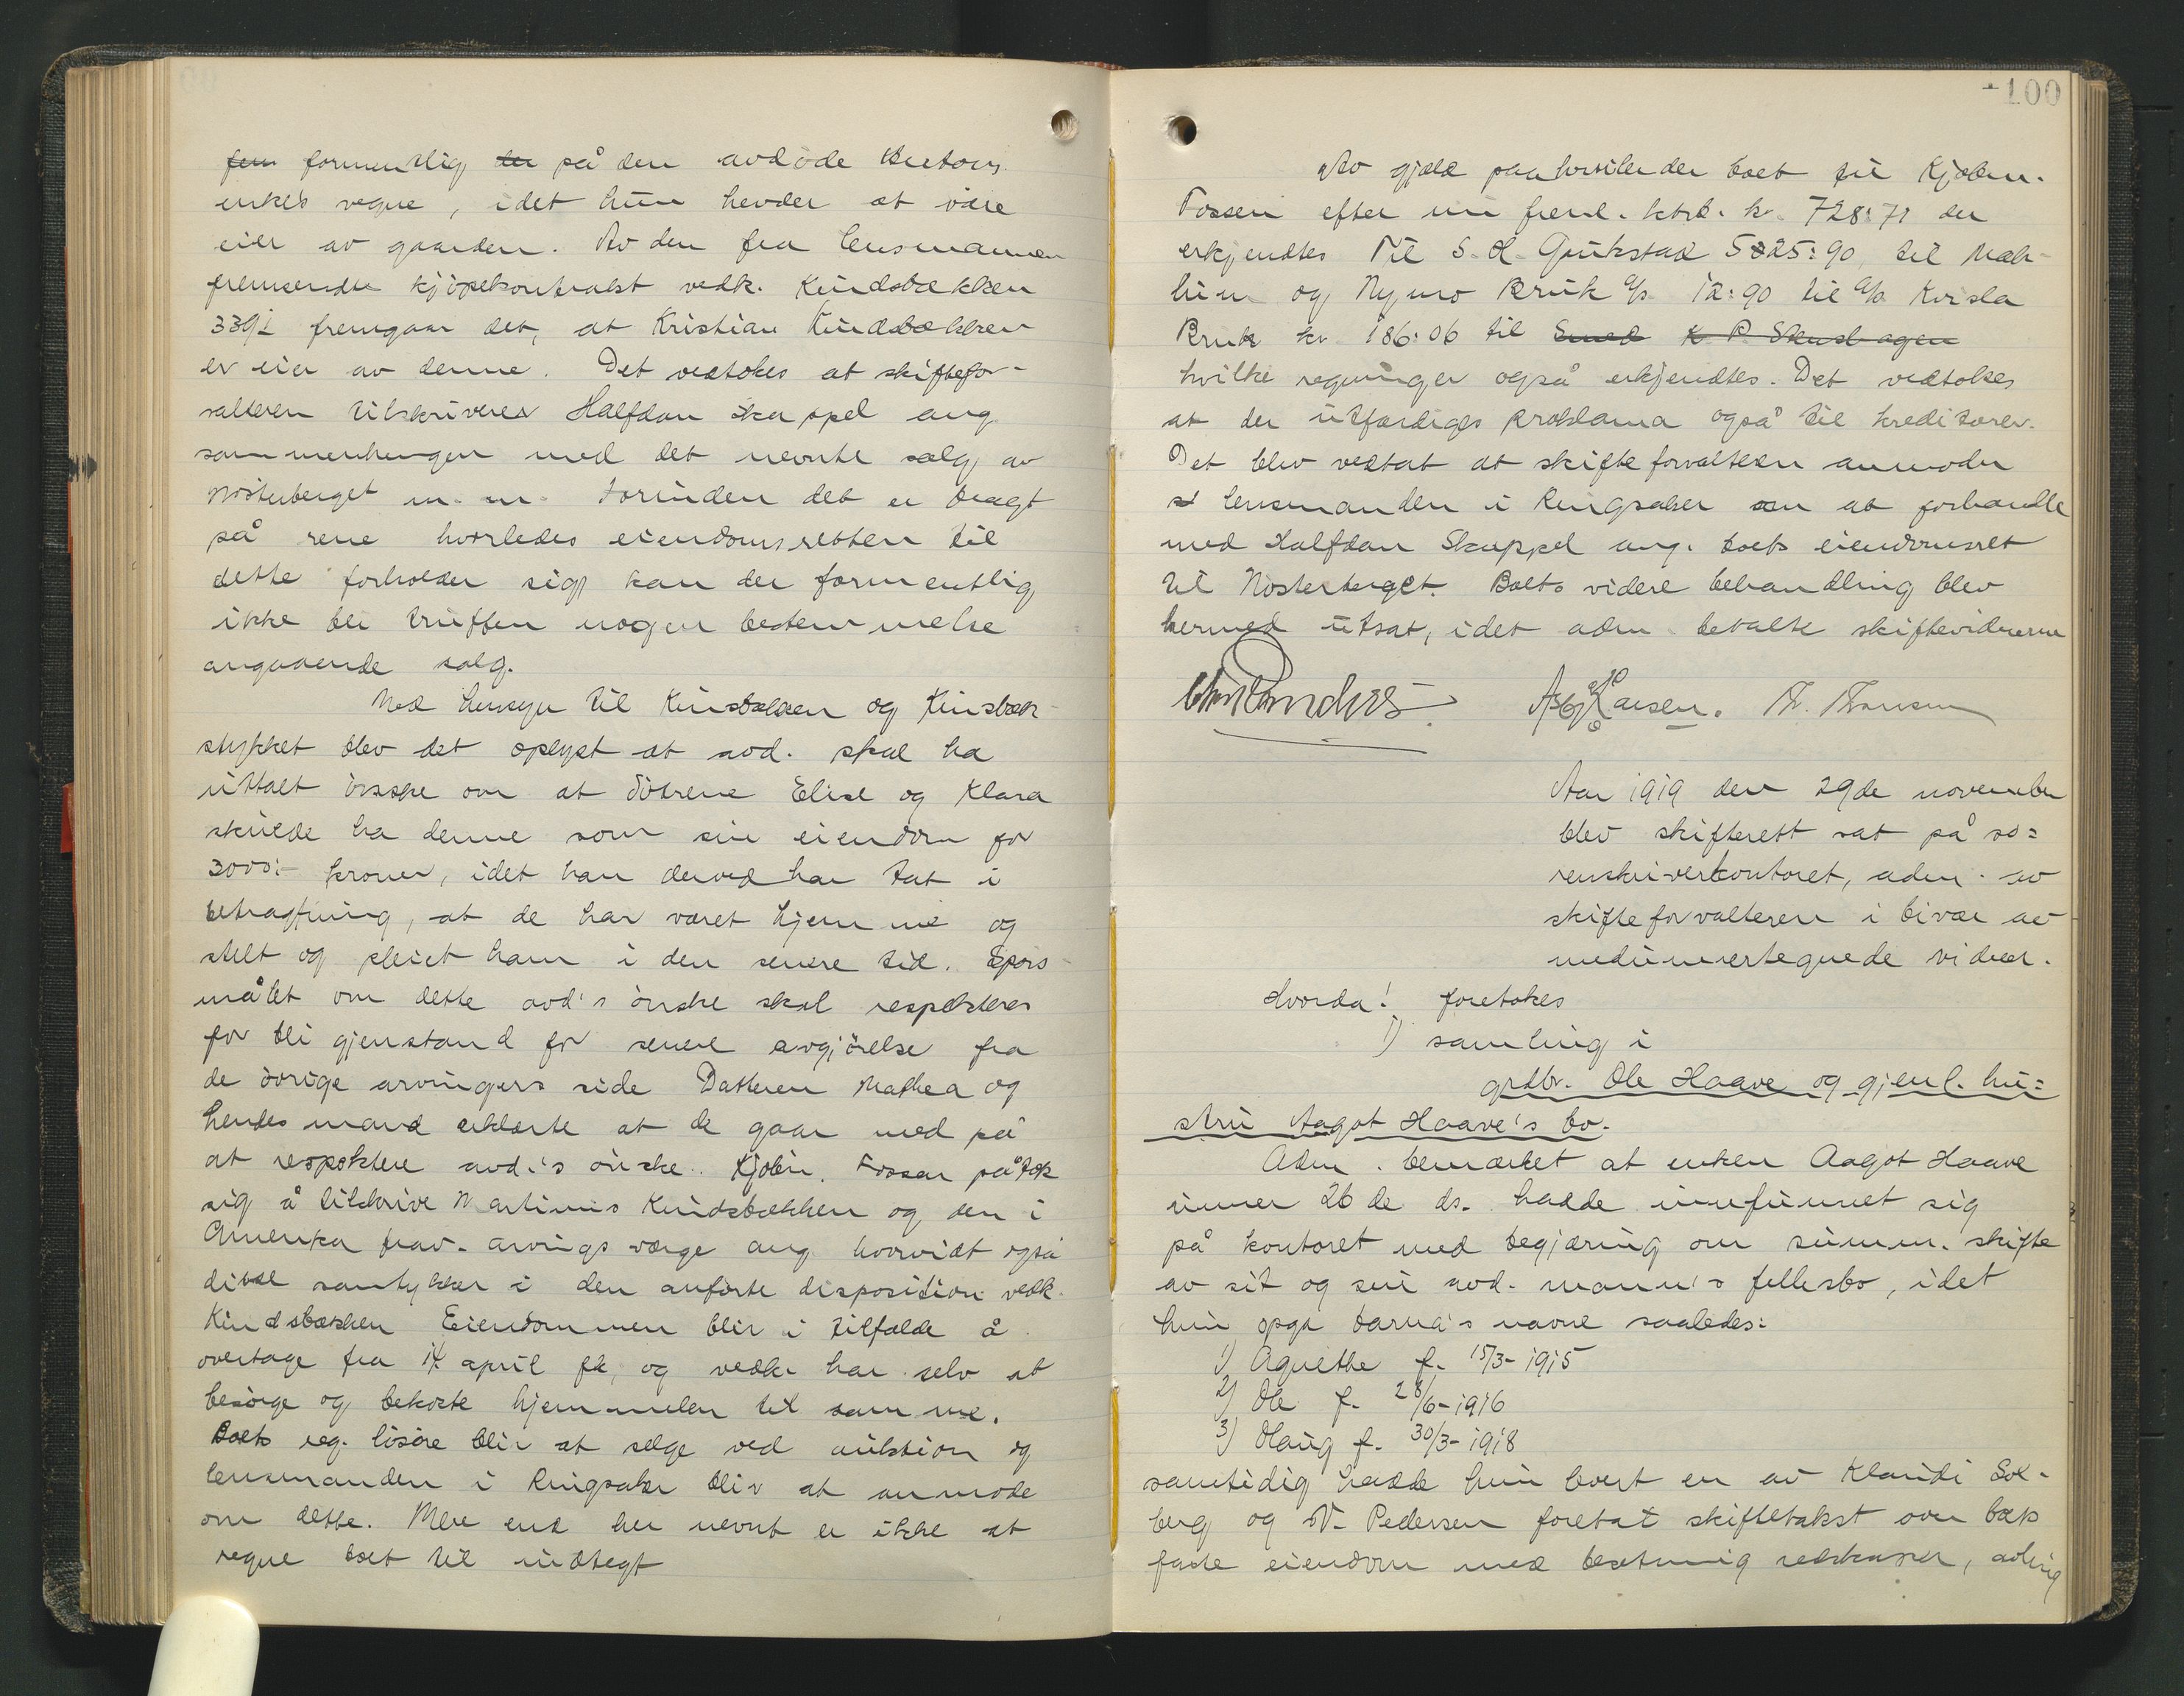 formentlig på den avdöde
enkes vegne, idet hun hevder at være
eier av gaarden. Av den fra lensmannen
fremsendte kjöpekontrakt vedk. Kindsbækken
339/1 fremgaar det, at Kristian Kindsbækken
er eier av denne. Det vedtokes at skiftefor-
valteren tilskriver Halfdan Skappel ang.
sammenhengen med det nevnte salg av
Nösterberget m. m. Forinden det er bragt
på rene hvorledes eiendomsretten til
dette forholder sig kan der formentlig
ikke bli truffen nogen bestemmelse
angaaende salg.
Med hensyn til Kinsbækken og Kinsbæk-
stykket blev det oplyst at avd. skal ha
uttalt önske om at dötrene Elise og Klara
skulde ha denne som sin eiendom for
3000:- kroner, idet han derved har tat i
betragtning, at de har været hjemme og
stelt og pleiet ham i den senere tid. Spörs-
målet om dette avd's önske skal respekteres
for bli gjenstand for senere avgjörelse fra
de övrige arvingers side Datteren Mathea og
hendes mand erklærte at de gaar med på
at respektere avd.'s önske. Kjölin. Fossen påtok
sig å tilskrive Martinus Kindsbækken og den i
Amerika frav. arvings værge ang. hvorvidt også
disse samtykker i den anförte disposition vedk.
Kindsbækken Eiendommen blir i tilfælde å
overtage fra 14 april fk, og vedk. har selv at
besörge og bekoste hjemmelen til samme.
Boets reg. lösöre blir at selge ved auktion og
lensmanden i Ringsaker blir at anmode
om dette. Mere end her nevnt er ikke at
regne boet til indtegt
100
Av gjæld paahviler der boet til Kjölin.
Fossen efter un freml. kr. 728:71 der
erkjendtes Til S. H. Gjukstad 5825:90, til Mæh-
lum og Nymo Bruk A/s 12:90 til A/s Kvisla
Bruk kr. 186:06 til Smed K P. Stensbagen
hvilke regninger også erkjendtes. Det vedtokes
at der utfærdiges proklama også til kreditorer.
Det blev vedtat at skifteforvalteren anmoder
lensmanden i Ringsaker om at forhandle
med Halfdan Skappel ang. boets eiendomsret
til Nösterberget. Boets videre behandling blev
hermed utsat, idet adm. betalte skiftevidnerne
Aar 1919 den 29de november
blev skifterett sat på so=
renskriverkontoret, adm. av
skifteforvalteren i bivær av
medunertegnede vidner.
Hvorda! foretokes
1) samling i
grdbr. Ole Haave og gjenl. hu=
stru Aagot Haave's bo.
Adm. bemærket at enken Aagot Haave
unner 26de ds. hadde innfunnet sig
på kontoret med begjæring om summ. skifte
av sit og sin avd. mann's fellesbo, idet
hun opga barna's navne saaledes:
1) Agnethe f. 15/3-1915
2) Ole f. 28/6-1916
3) Olaug f. 30/3-1918
samtidig hadde hun levert en av Klaudi Sol-
berg og N. Pedersen foretat skiftetakst over boets
faste eiendom med besetning redskaper, avling